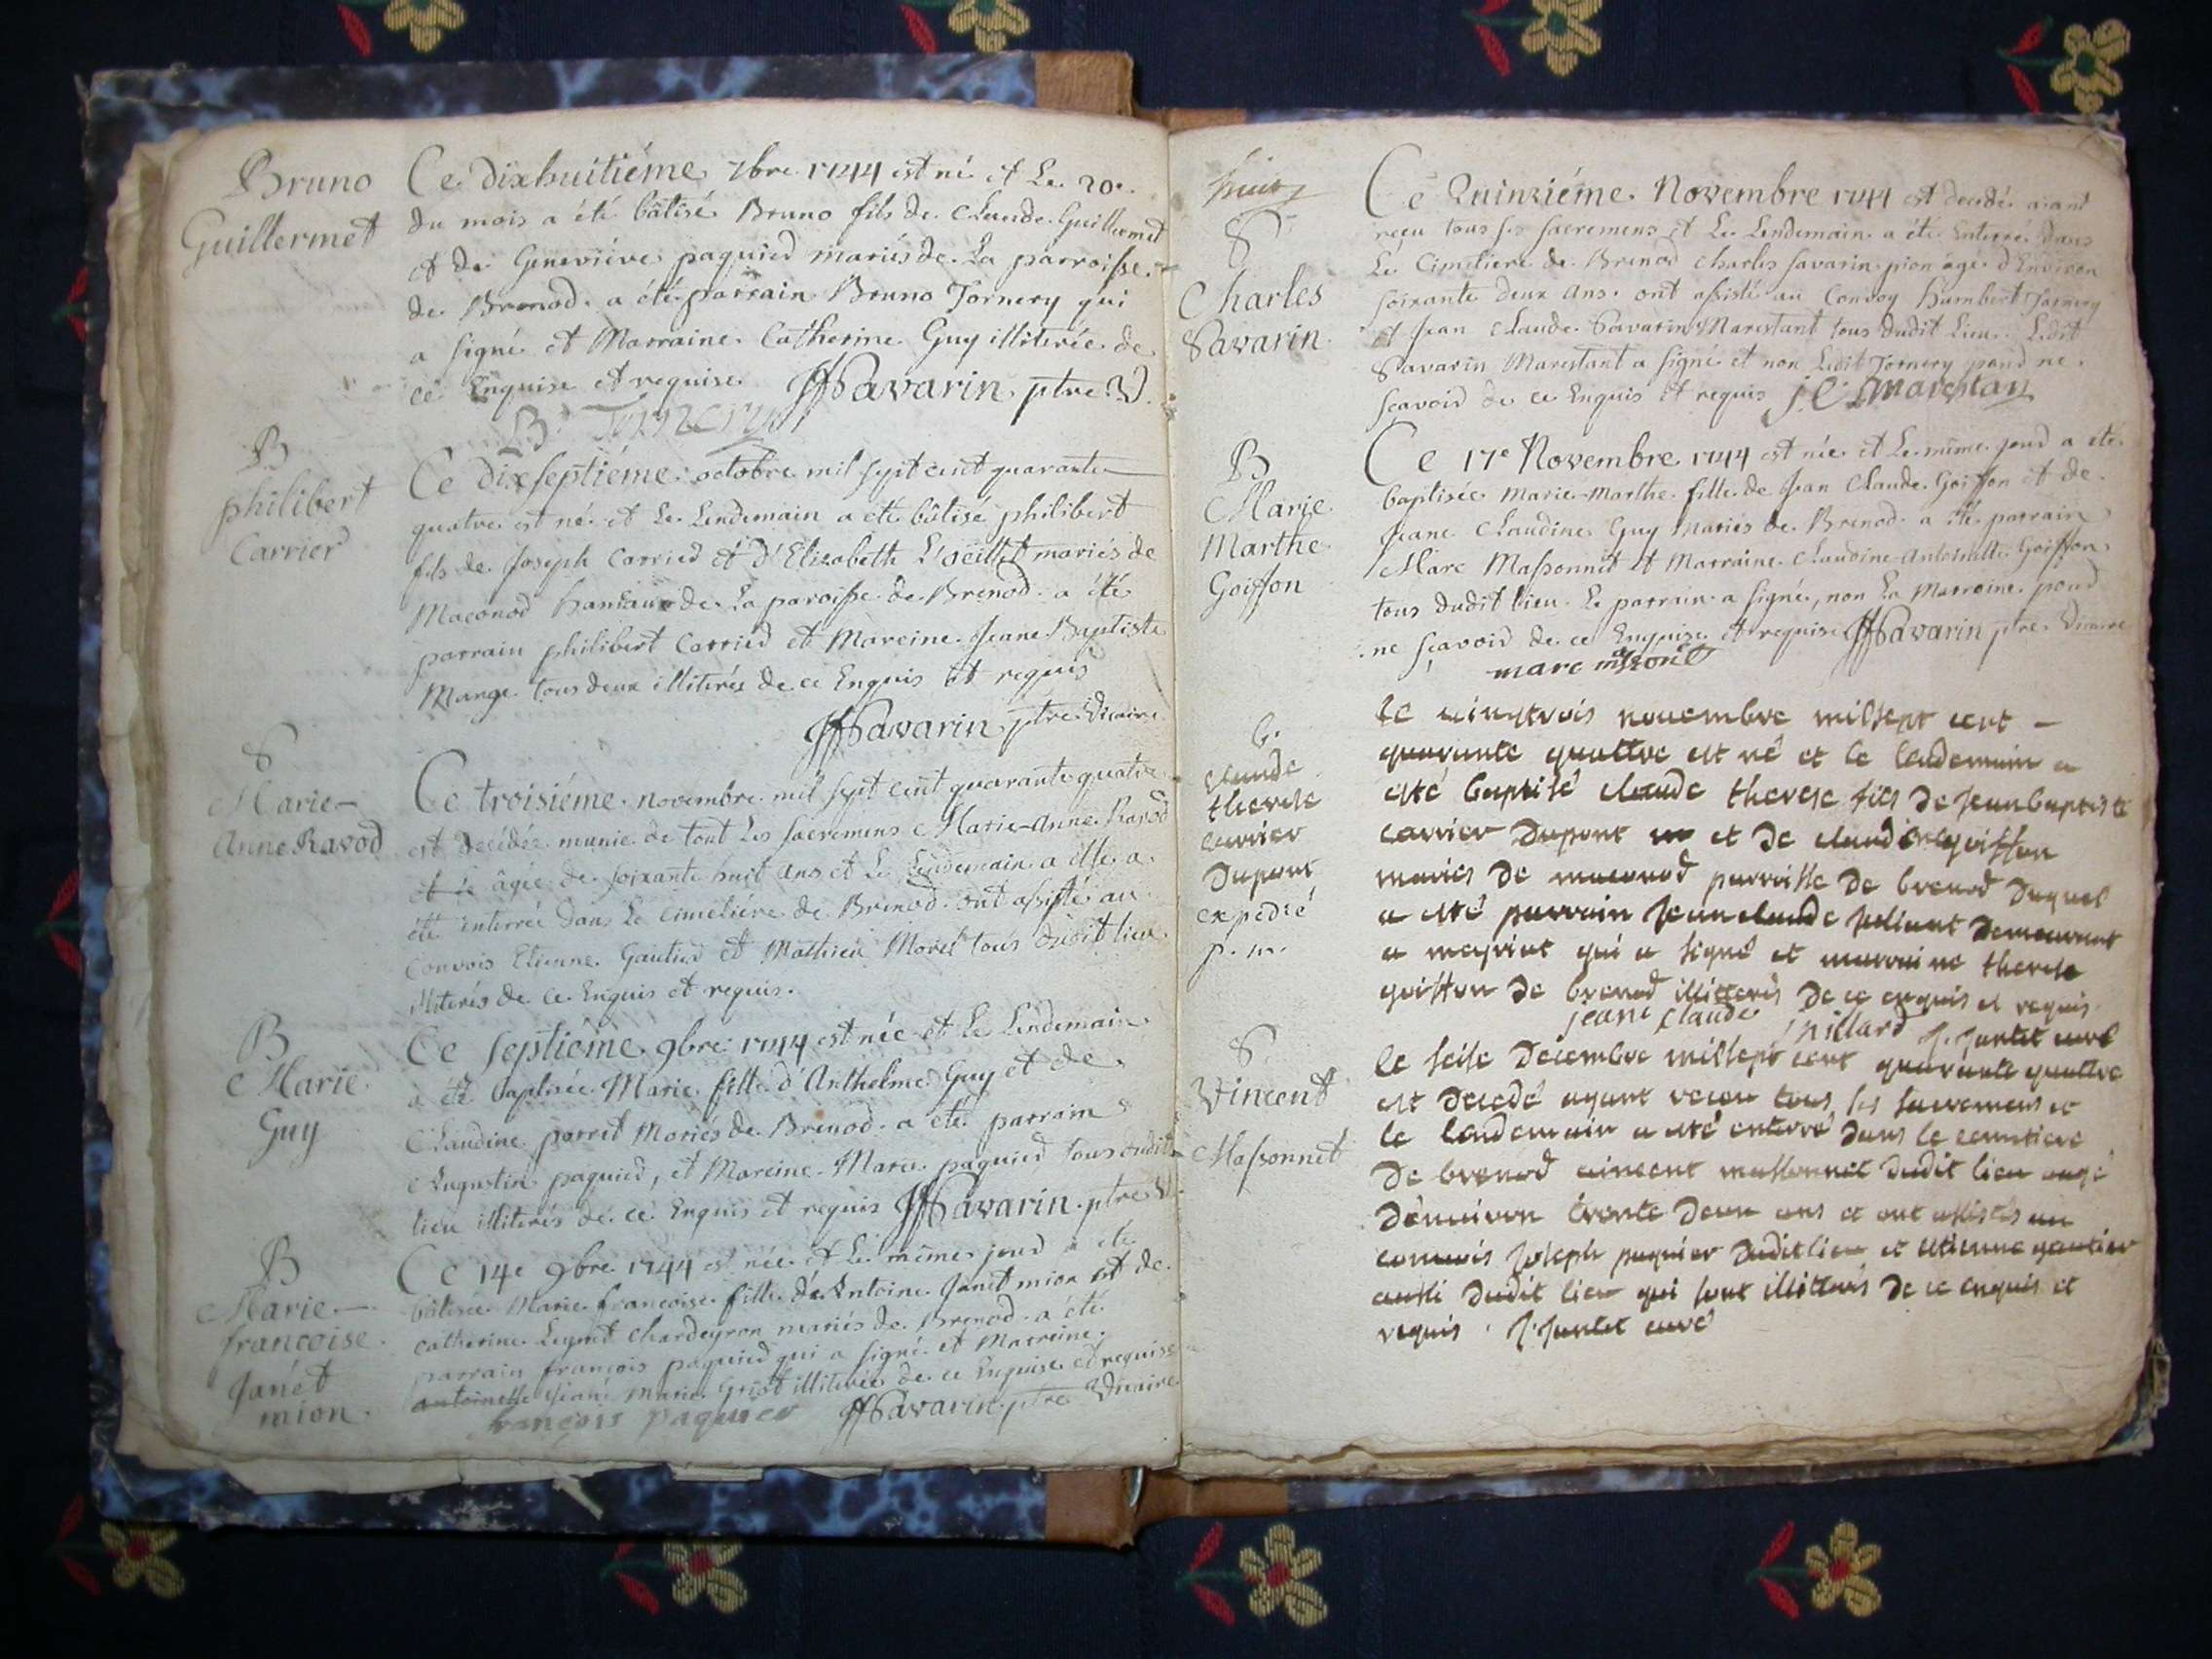 Bruno
Guillermet
Ce dixhuitiéme 7bre 1744 est né et Le 20e.
du mois a été bâtisé Bruno fils de Claude Guillermet
et de Geneviéve paquied mariés de La parroisse
de Brenod. a été parrain Bruno Tornery qui
a signé et Marraine Catherine Guy illiterée de
ce Enquise et requise. Savarin ptre V.
B
philibert
Carrier
Ce dixseptiéme octobre mil sept cent quarante
quatre est né et Le Lendemain a été bâtisé philibert
fils de Joseph Carried et d'Elizabeth L'oeillet mariés de
Maconod hameau de La paroisse de Brenod. a été
parrain philibert Carried et Mareine Jeane Baptiste
Mange tous deux illiterés de ce Enquis et requis
Savarin ptre Vicaire
S
Marie-
Anne Ravod
Ce troisiéme novembre mil sept cent quarante quatre
est decédée munie de tout Les sacremens Marie-Anne Ravod
et âgée de soixante huit ans et Le Lendemain a
été interrée dans Le cimetiére de Brenod. ont assisté au
Convois Etienne Gautied et Mathieu Morel tous dudit lieu
illiterés de ce Enquis et requis.
B
Marie
Guy
Ce septiéme 9bre 1744 est née et Le Lendemain
a été baptisée Marie fille d'Anthelme Guy et de
Claudine parret Mariés de Brenod. a été parrain
Augustin paquied, et Mareine Marie paquied tous dudit
lieu illiterés de ce Enquis et requis Savarin ptre V.
B
Marie-
francoise
Janét
mion.
Ce 14e 9bre 1744 est née et Le même jour a été
bâtisée Marie francoise fille de Antoine Janet mion et de
Catherine Chardeyron mariés de Brenod. a été
parrain françois paquied qui a signé et Marreine
antoinette Marie illiterée de ce Enquise et requise
françois paquier Savarin ptre Vicaire
S
Charles
Savarin
Ce Quinziéme Novembre 1744 est decedé aiant
reçu tous ses sacremens et Le Lendemain a été Enterré dans
Le Cimetiere de Brenod Charles Savarin pion âgé d'Environ
soixante deux ans. ont assisté au Convoy Humbert Tornery
et Jean Claude Savarin Marestant tous dudit Lieu. Ledit
Savarin Marestant a signé et non Ledit Tornery pour ne
sçavoir de ce Enquis et requis
B
Marie
Marthe
Goiffon
Ce 17e Novembre 1744 est née et Le même jour a été
baptisée Marie-Marthe fille de Jean Claude Goiffon et de
Jeane Claudine Guy Mariés de Brenod. a été parrain
Marc Massonnet et Marraine Claudine Antoinette Goiffon
tous dudit lieu. Le parrain a signé, non La Marreine pour
ne sçavoir de ce Enquise et requise Savarin ptre Vicaire
marc massonet
b.
claude
therese
carrier
Dupont
expedié
p. m.
le vingtrois novembre mil sept cent -
quarante quattre est né et le lendemain a
esté baptisé claude therese fils de jean baptiste
carrier Dupont et de claudine goiffon
mariés de maconod parroisse de brenod duquel
a esté parrain jean claude demeurant
a meyriat qui a signé et marraine therese
goiffon de brenod illitterés de ce enquis et requis
jeane claude J. jantet curé
S
Vincent
Massonnet
le seise decembre mil sept cent quarante quattre
est decedé ayant receu tous ses sacremens et
le lendemain a esté enterré dans le cemetiere
de brenod vincent massonnet dudit lieu aagé
d'environ trente deux ans et ont assistés au
convois joseph paquier dudit lieu et etienne gautier
aussi dudit lieu qui sont illitterés de ce enquis et
requis. J. jantet curé